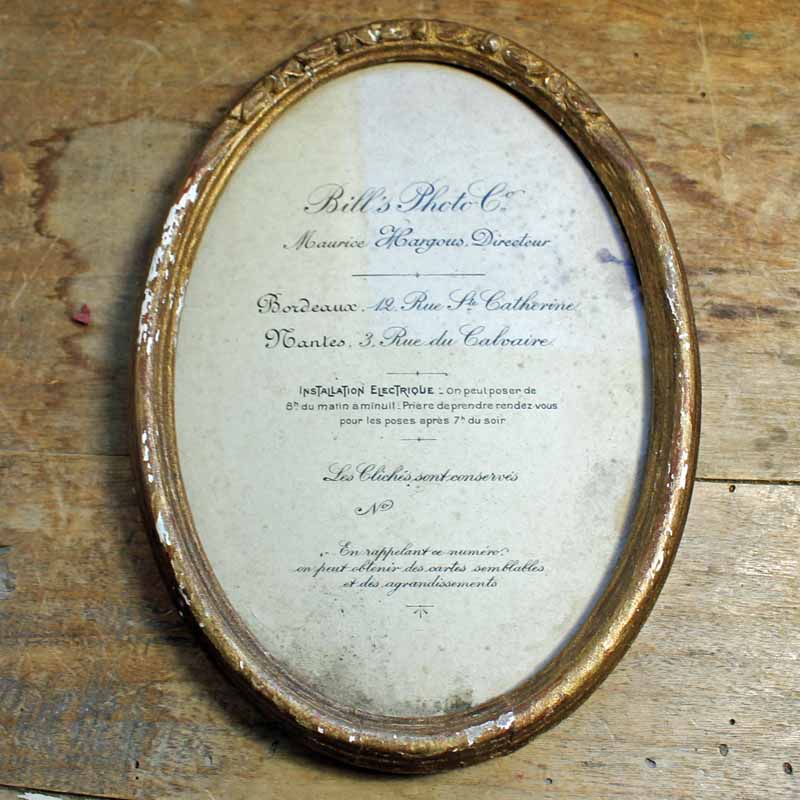 Bill's Photo Cº
Maurice Hargous, Directeur
Bordeaux. 12. Rue Ste Catherine
Nantes. 3. Rue du Calvaire
INSTALLATION ELECTRIQUE - On peut poser de
8h du matin a minuit - Priere de prendre rendez-vous
pour les poses après 7h du soir
Les Clichés sont conservés
Nº
En rappelant ce numéro
on peut obtenir des cartes semblables
et des agrandissements